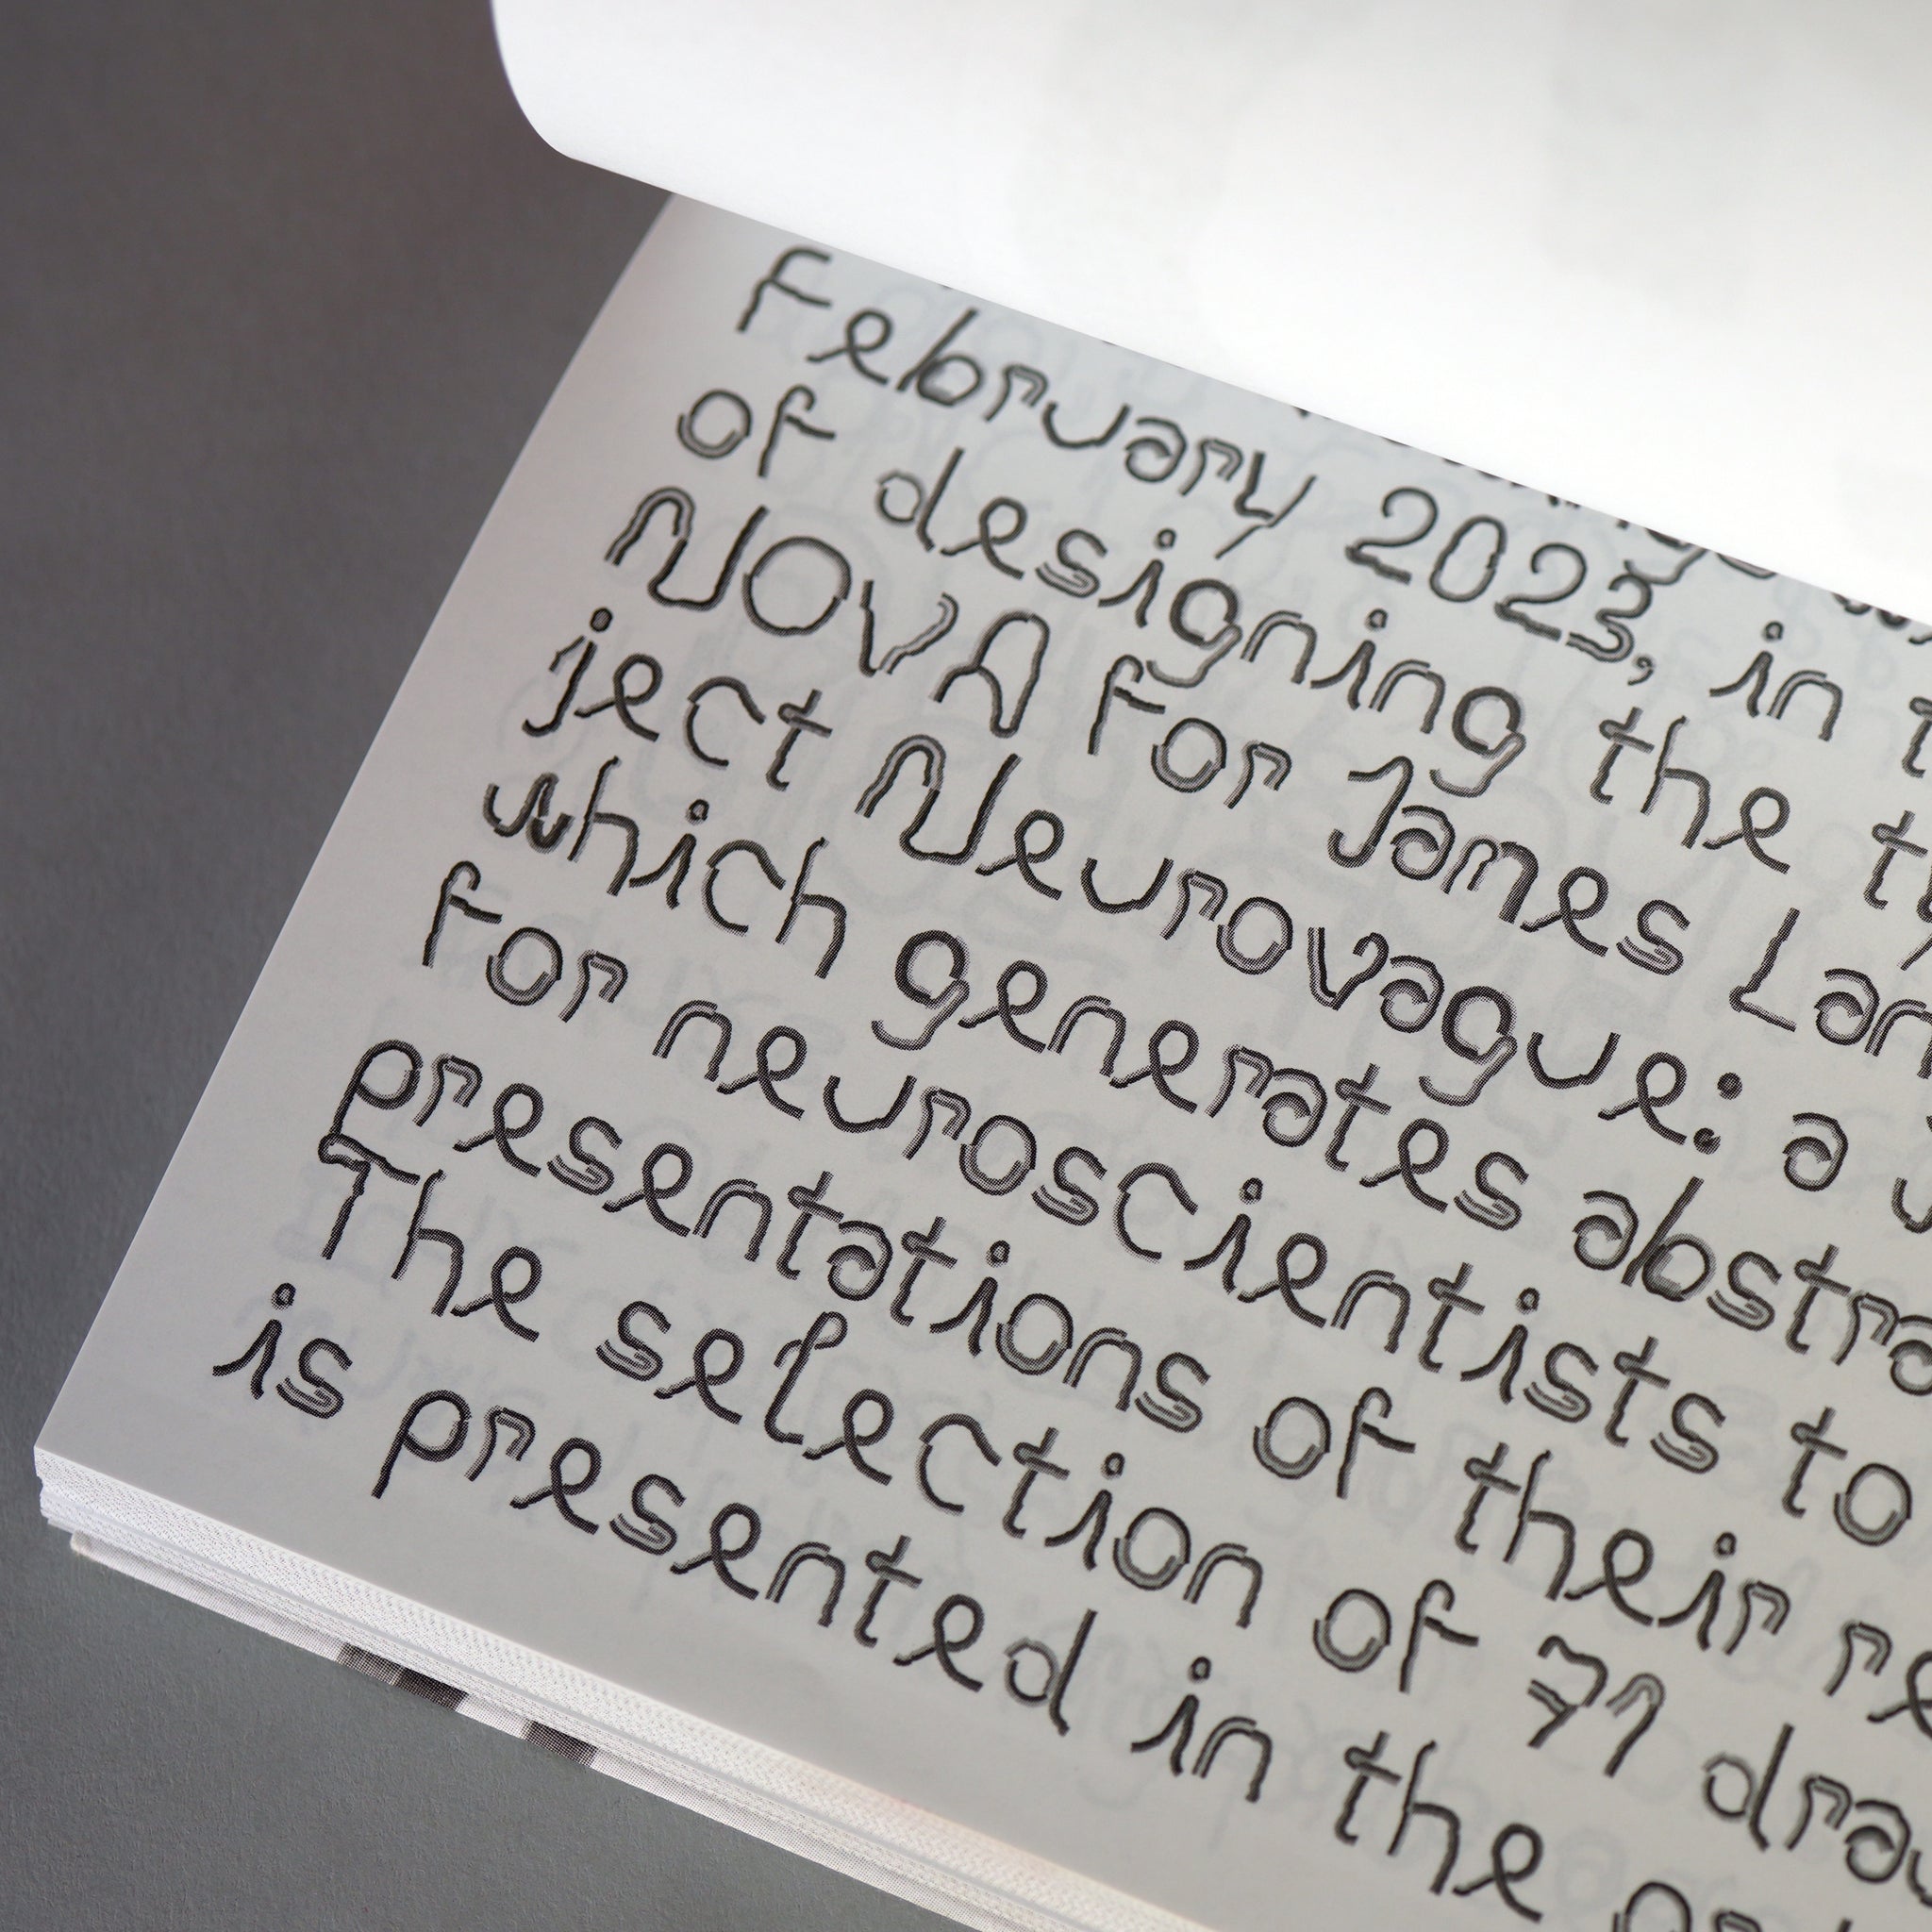 February 2023, in
of designing the
NOVA for James
ject Neurovague: a
which generates
for neuroscientists to
presentations of their
The selection of 71
is presented in the